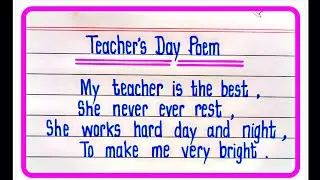 Teacher's Day Poem
My teacher is the best,
She never ever rest,
She works hard day and night,
To make me very bright.